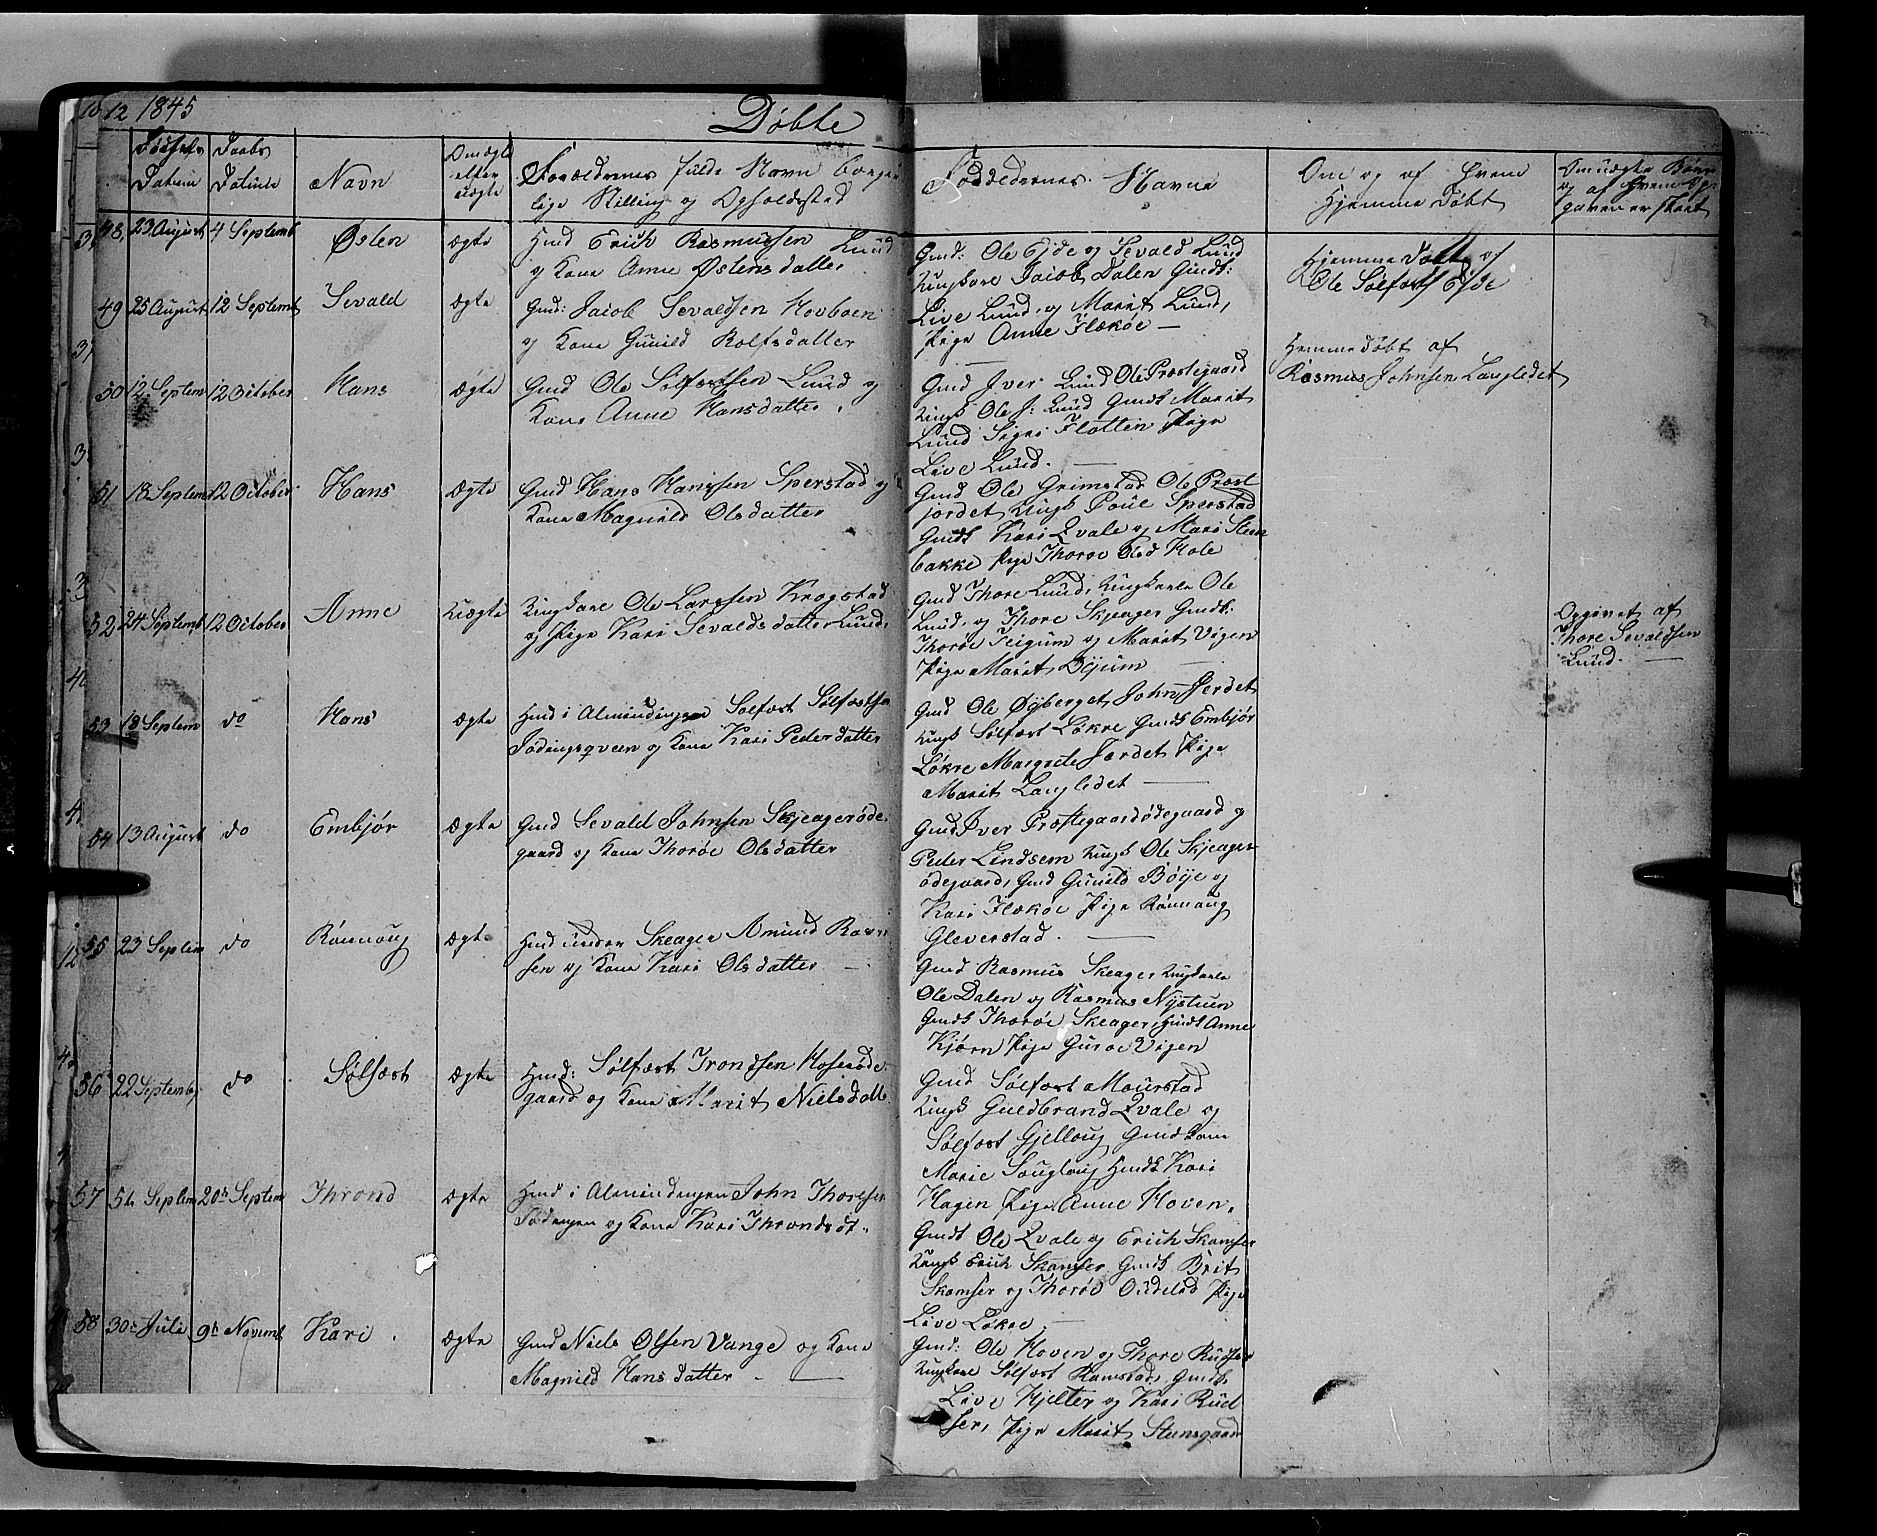 12 1845
Døbte
Fødsels Datum
Daabs Datum
Navn
Om ægte eller uægte
Forældrenes fulde Navn borger
lige Stilling og Opholdsted
Faddernes Navne
Om og af Hvem
Hjemme Døbt
Om uægte Børn
og af Hvem Op
gaven er skeet
48, 23 August 4 Septemb Østen Ægte
Hmd Erich Rasmussen Lund
og Kone Anne Østensdatter
Gmd: Ole Eide og Sevald Lund
Ungkare Jacob Dalen Gmdk:
Live Lund og Marit Lund,
Pige Anne Flækøe —
Hjemme Døbt af
Ole Sølfæst Eide
49 25 August 12 Septemb Sevald Ægte
Gmd: Jacob Sevaldsen Hovboen
og Kone Gunild Rolfsdatter
Hjemmedøbt af
Rasmus Johnsen Langledet
50 12 Septem 12 October Hans Ægte
Gmd Ole Sølfestsen Lund og
Kone Anne Hansdatter.
Gmd Iver Lund Ole Præstegaard
Ungk Ole J: Lund Gmdk Marit
Lund Signe Flatten Pige
Live Lund. —
51 18 Septem 12 October Hans Ægte
Gmd Hans Hanssen Sperstad og
Kone Magnild Olsdatter
Gmd Ole Grimstad Ole Præst
jordet Ungk Poul Sperstad
Gmdk Kari Qvale og Mari Steen
bakke Pige Thoroe Hole
52 24 Septemb 12 October Anne Uægte
Ungkare Ole Larssen Krogstad
og Pige Kari Sevaldsdatter Lund.
Gmd Thore Lund, Ungkarle Ole
Lund, og Thore Skjeager Gmdk:
Thoroe Teigum og Marit Vigen
Pige Marit —
Opgivet af
Thore Sevaldsen
Lund. —
53 18 Septem do Hans Ægte
Hmd i Almindingen Sølfæst Sølfæstsen
og Kone Kari Pedersdatter
Gmd Ole Øyberget John Jordet
Ungk Sølfæst Løkre Gmdk Embjør
Løkre Margrete Jordet Pige
Marit Langledet —
54 13 August do Embjør Ægte
Gmd Sevald Johnsen Skjeagerøde
gaard og Kone Thoroe Olsdatter
Gmd Iver Præstegaardødegaard og
Peder Lindsem Ungk Ole Skjeager
ødegaard, Gmd Gunild Bøye og
Kari Flækøe Pige Rønnoug
Gleverstad. —
55 23 Septem do Rønnoug Ægte
Hmd under Skeager Amund
sen og Kone Kari Olsdatter —
Gmd Rasmus Skeager Ungkarle
Ole Dalen og Rasmus Nystuen
Gmdk Thoroe Skeager, Hmdk Anne
Kjørn Pige Guroe Vigen
56 22 Septemb do Sølfæst Ægte
Hmd: Sølfæst Trondsen Hoserøde
gaard og Kone Marit Nielsdatt
Gmd Sølfæst Mourstad
Ungk Guldbrand Qvale og
Sølfæst Gjelloug Gmdkone
Marie Hmdk Kari
Hagen Pige Anne Hoven.
57 5te Septem 20de Septem Thrond Ægte
Hmd i Almindingen John Thoresen
og Kone Kari Throndsdt.
Gmdk Ole Qvale og Erich Skamser
Ungk Erich Skamser Gmdk Brit
Skamser og Thoroe Pige
Live Løkre. —
58 30te Juli 9de Novemb Kari. Ægte
Gmd Niels Olsen Vange og Kone
Magnild Hansdatter —
Gmd: Ole Hoven og Thore Rudser
Ungkare Sølfæst Ramstad, Gmdk
Live Hjelter og Kari Rud
ser, Pige Marit Steensgaard